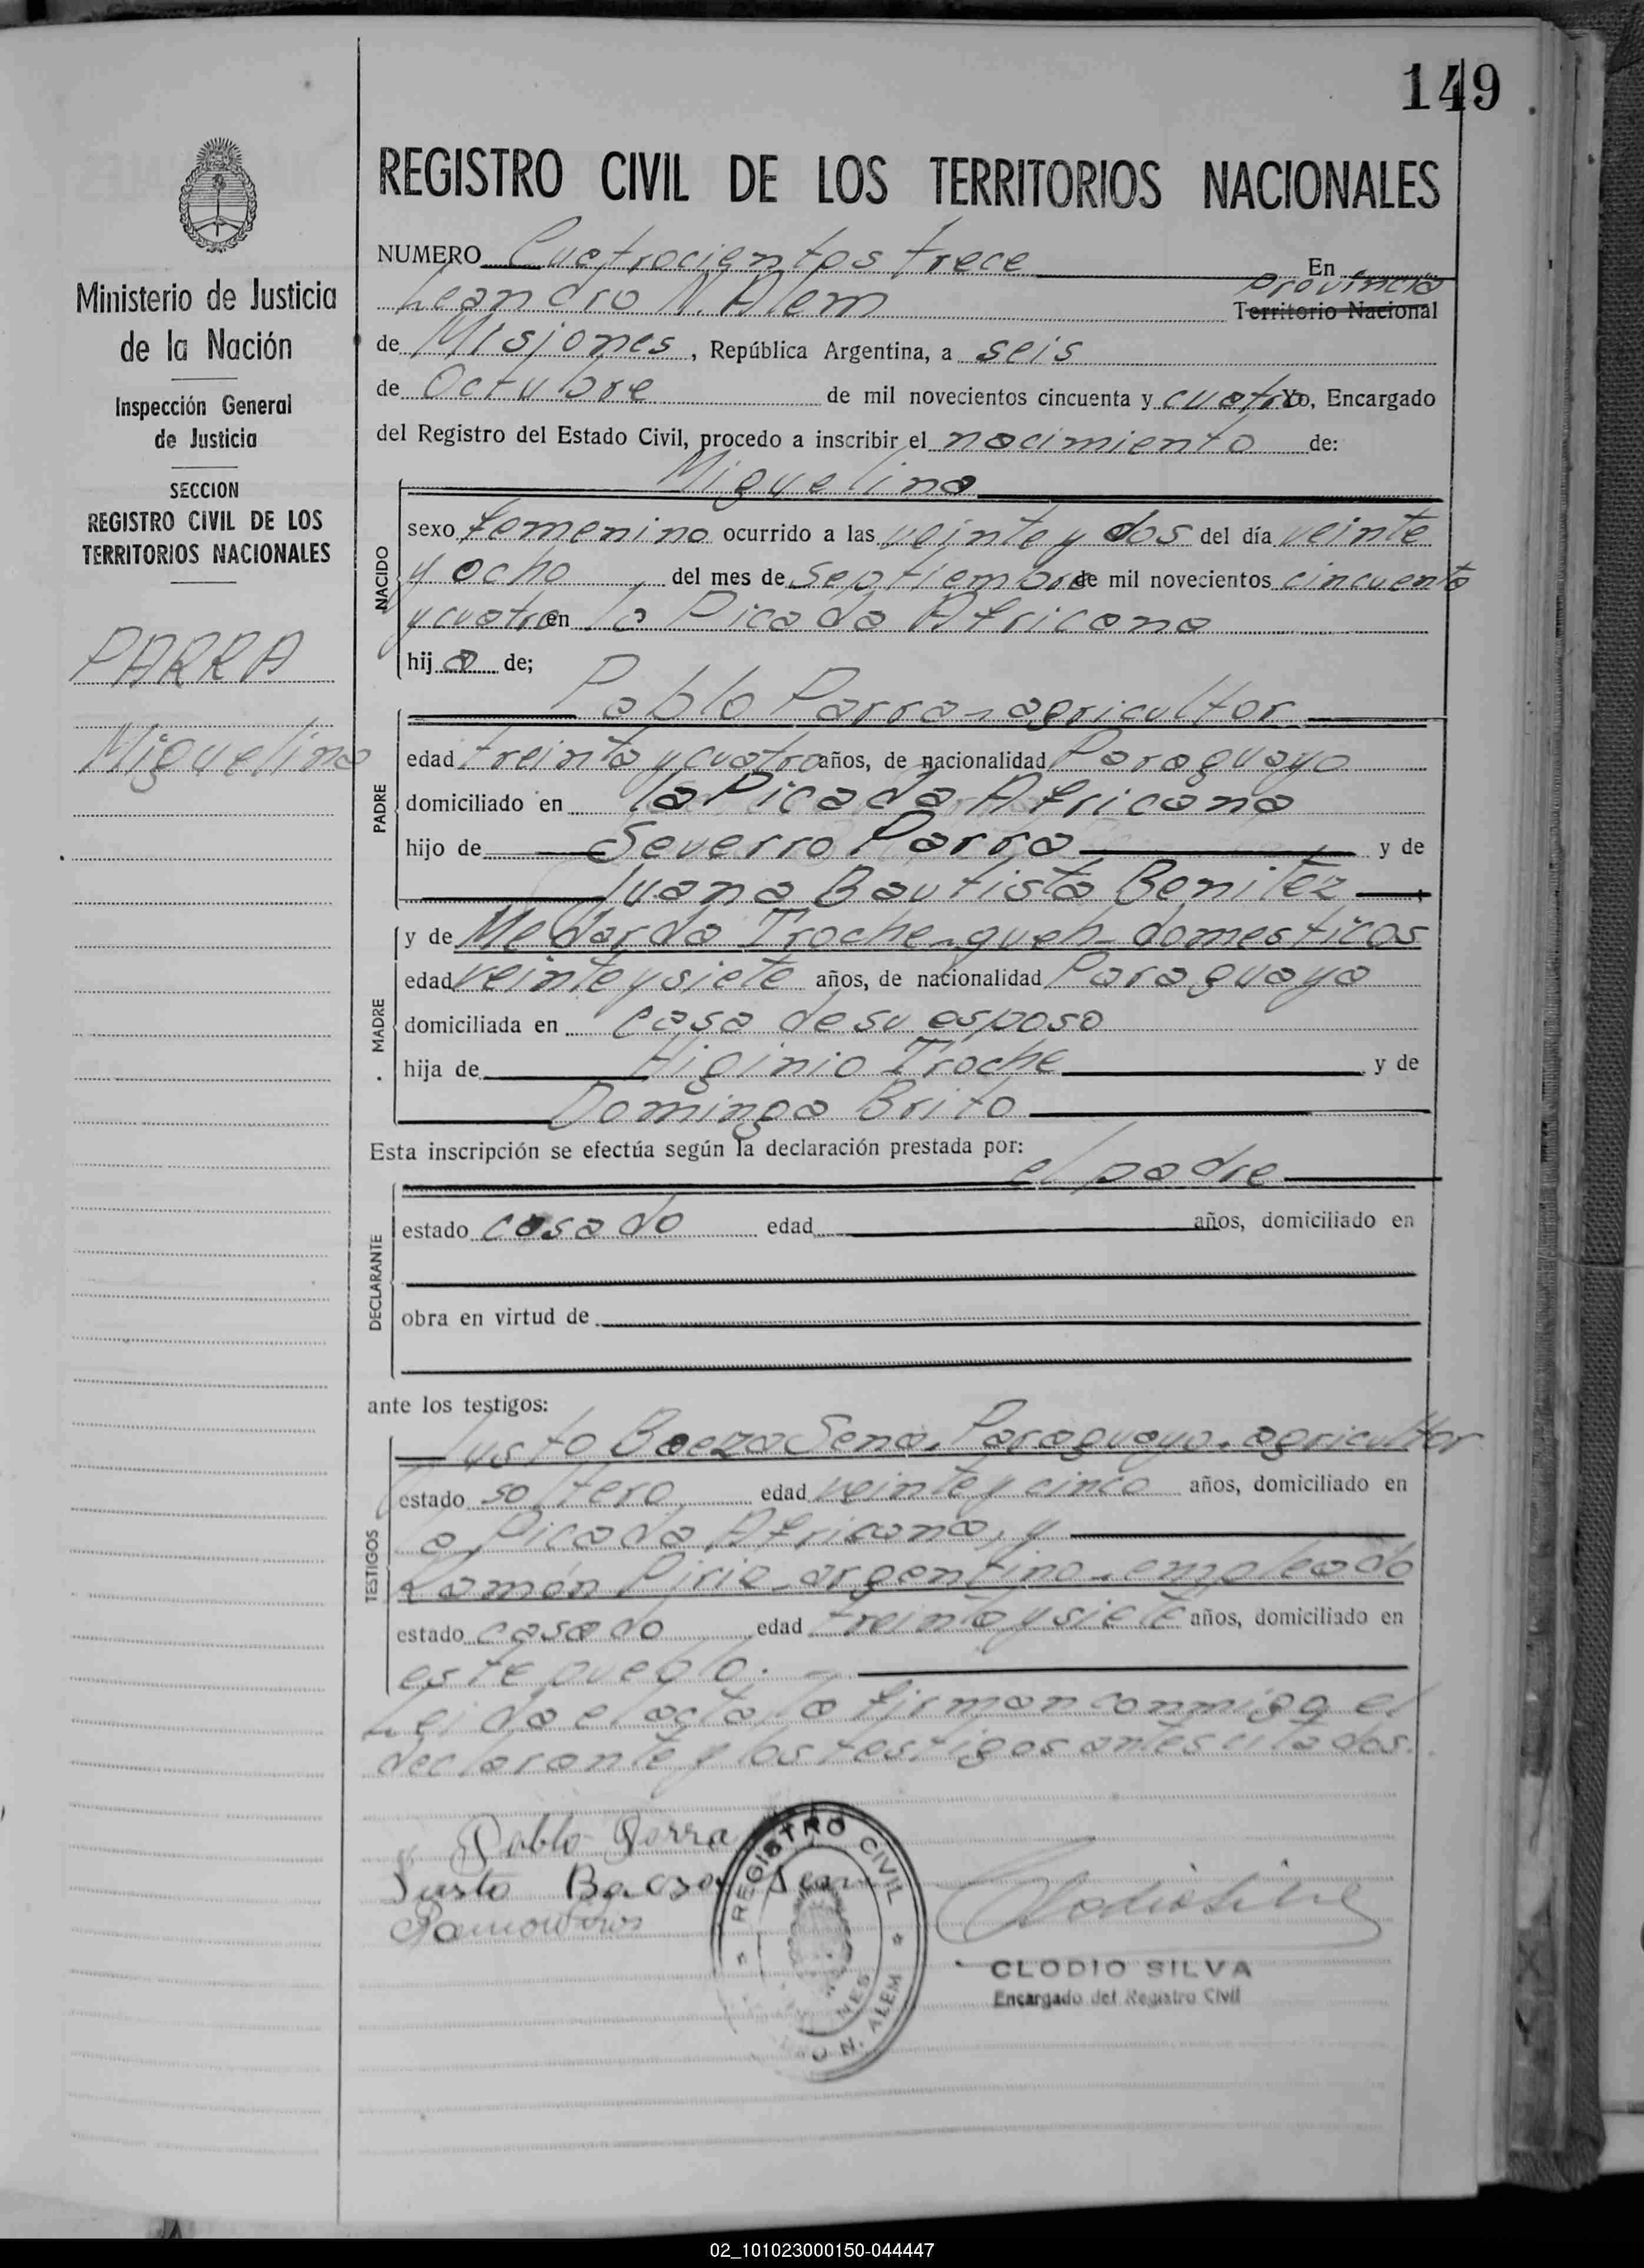 149
REGISTRO CIVIL DE LOS TERRITORIOS NACIONALES
Ministerio de Justicia
de la Nación
Inspección General
de Justicia
SECCION
REGISTRO CIVIL DE LOS
TERRITORIOS NACIONALES
PARRA
Miguelina
NUMERO Cuatrocientos trece En
Leandro N. Alem provincia Territorio Nacional
de Misiones, República Argentina, a seis
de Octubre de mil novecientos cincuenta y cuatro Yo, Encargado
del Registro del Estado Civil, procedo a inscribir el nacimiento de:
Miguelina
NACIDO
sexo femenino ocurrido a las veinte y dos del día veinte
y ocho del mes de Septiembre de mil novecientos cincuenta
y cuatro en la Picada Africana
hija de;
Pablo Parra - agricultor
PADRE
edad treinta y cuatro años, de nacionalidad Paraguayo
domiciliado en la Picada Africana
hijo de Severro Parra y de
Juana Bautista Benitez
MADRE
y de Medarda Troche - queh - domesticos
edad veinte y siete años, de nacionalidad Paraguaya
domiciliada en casa de su esposo
hija de Higinio Troche y de
Dominga Brito
Esta inscripción se efectúa según la declaración prestada por:
el padre
DECLARANTE
estado casado edad años, domiciliado en
obra en virtud de
ante los testigos:
TESTIGOS
Justo Baeza Sena. Paraguayo. agricultor
estado soltero edad veinte y cinco años, domiciliado en
la Picada Africana, y
Ramón Piris - argentino - empleado
estado casado edad treinta y siete años, domiciliado en
este pueblo. -
Leida el acta, la firman conmigo el
declarante y los testigos antes citados.
Pablo Parra
Justo Baeza Sena
Ramon Piris
REGISTRO CIVIL
N. ALEM
CLODIO SILVA
Encargado del Registro Civil
02_101023000150-044447